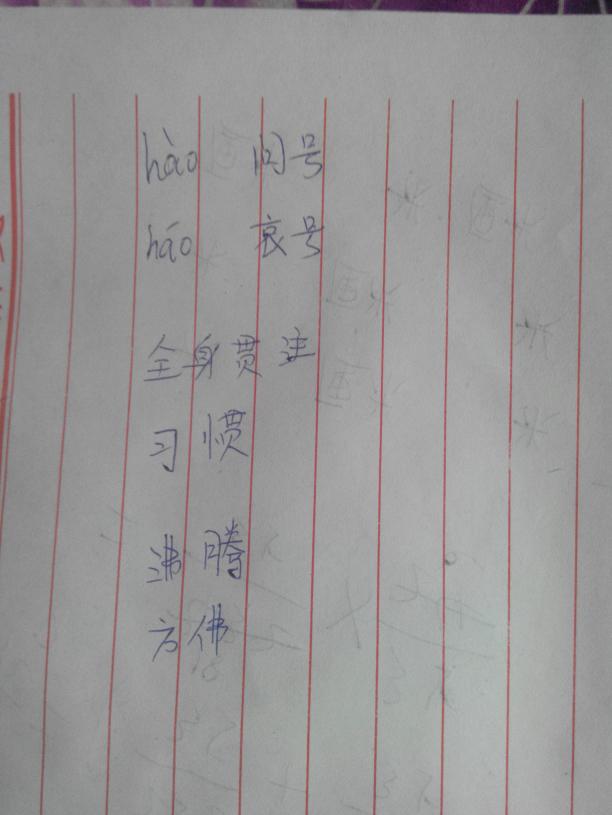 hào 问号
háo 哀号
全身贯注
习惯
沸腾
方佛